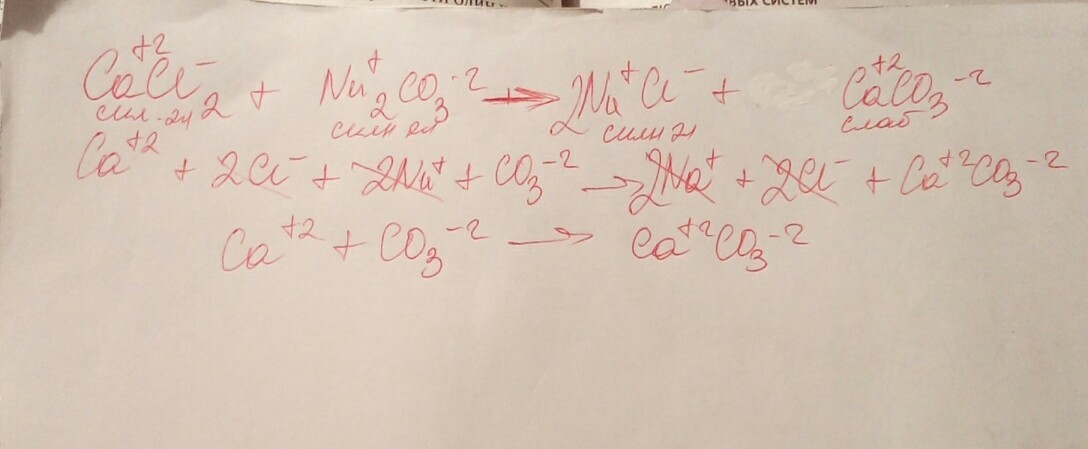 ВЫХ СИСТЕМ
Ca⁺²Cl⁻₂ + Na⁺₂CO₃⁻² → 2Na⁺Cl⁻ + Ca⁺²CO₃⁻²
сил. эл сильн эл сильн эл слаб
Ca⁺² + 2Cl⁻ + 2Na⁺ + CO₃⁻² → 2Na⁺ + 2Cl⁻ + Ca⁺²CO₃⁻²
Ca⁺² + CO₃⁻² → Ca⁺²CO₃⁻²